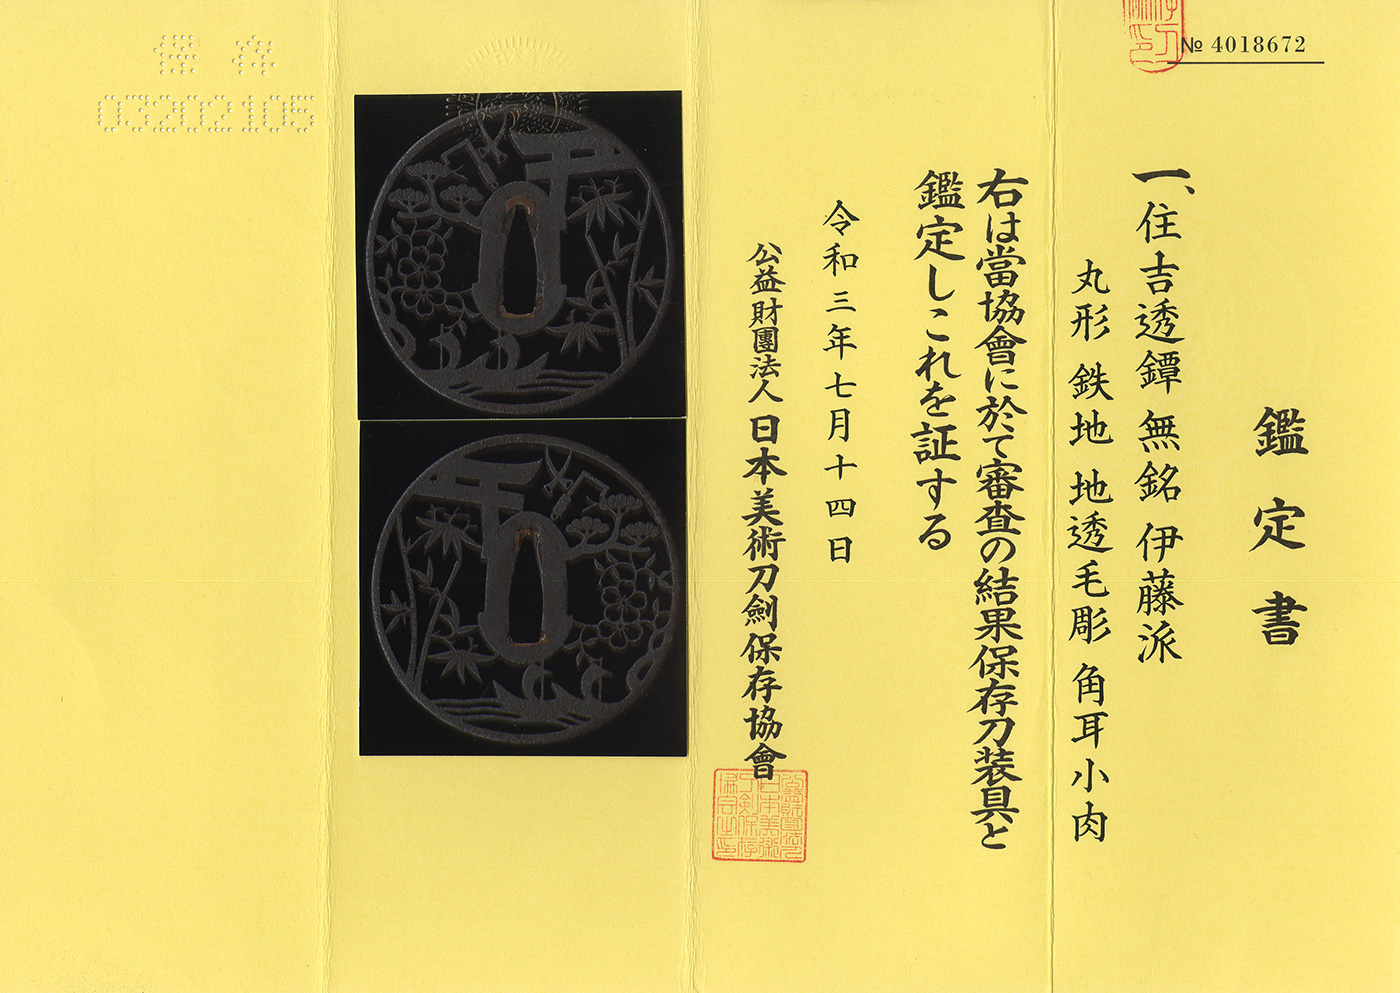 № 4018672
鑑定書
一、住吉透鐔 無銘 伊藤派
丸形 鉄地 地透毛彫 角耳小肉
右は當協會に於て審査の結果保存刀装具と
鑑定しこれを証する
令和三年七月十四日
公益財團法人 日本美術刀劍保存協會
保存
03202105